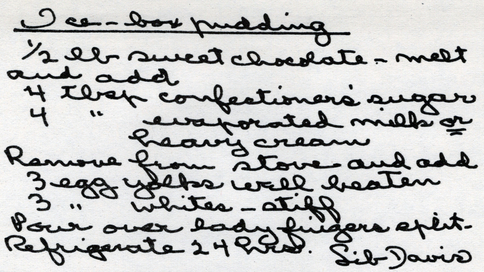 Ice-box pudding
1/2 lb sweet chocolate - melt
and add
4 tbsp confectioners' sugar
4 " evaporated milk or
heavy cream
Remove from stove and add
3 egg yolks well beaten
3 " whites - stiff
Pour over lady fingers split-
Refrigerate 24 hrs. Lib Davis